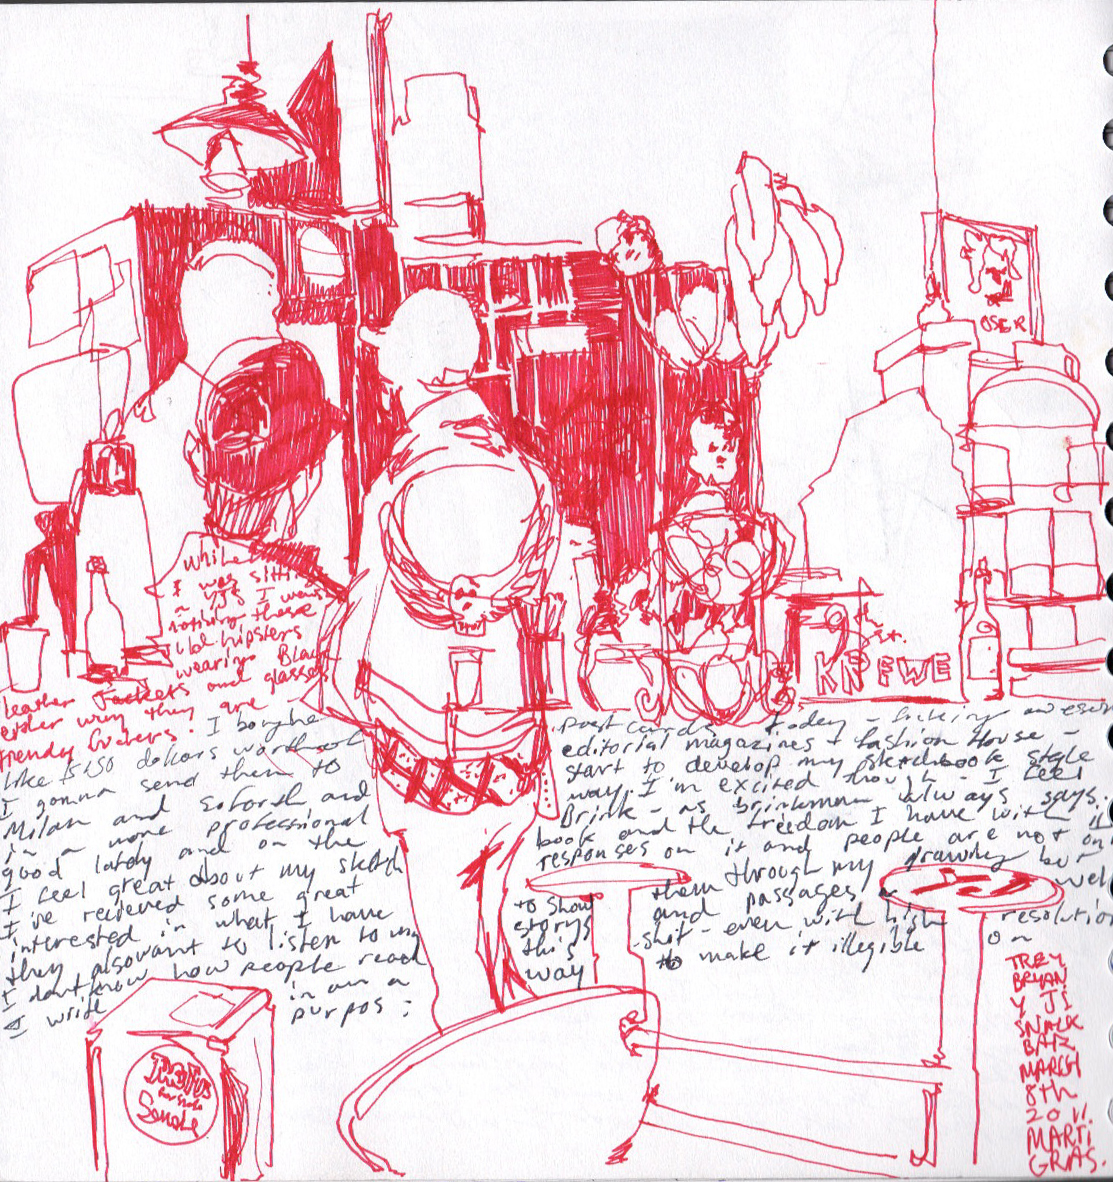 OSER
While
I was sitting
I was
noticing these
old hipsters
wearing Black
leather Jackets and glasses
either way they are
trendy fuckers. I bought
like $150 dollars worth of
I gonna send them to
Milan and soforth and
in a more professional
good lately and on the
I feel great about my sketch
I've recieved some great
interested in what I have
they also want to listen to my
I dont know how people read
I write in an a
purpos :
KNFWE
postcards today - fucking awesom
editorial magazines + fashion House -
start to develop my sketchbook style
way. I'm excited though - I feel
Brink - as brinkman always says.
book and the freedom I have with it
responses on it and people are not on
them through my drawing but
well
to show and passages
storys shit - even with high resolution
this to make it illegible
way
on
TREY
BRYAN
Y JI
SNACK
BAR
MARCH
8th
2011.
MARTI
GRAS.